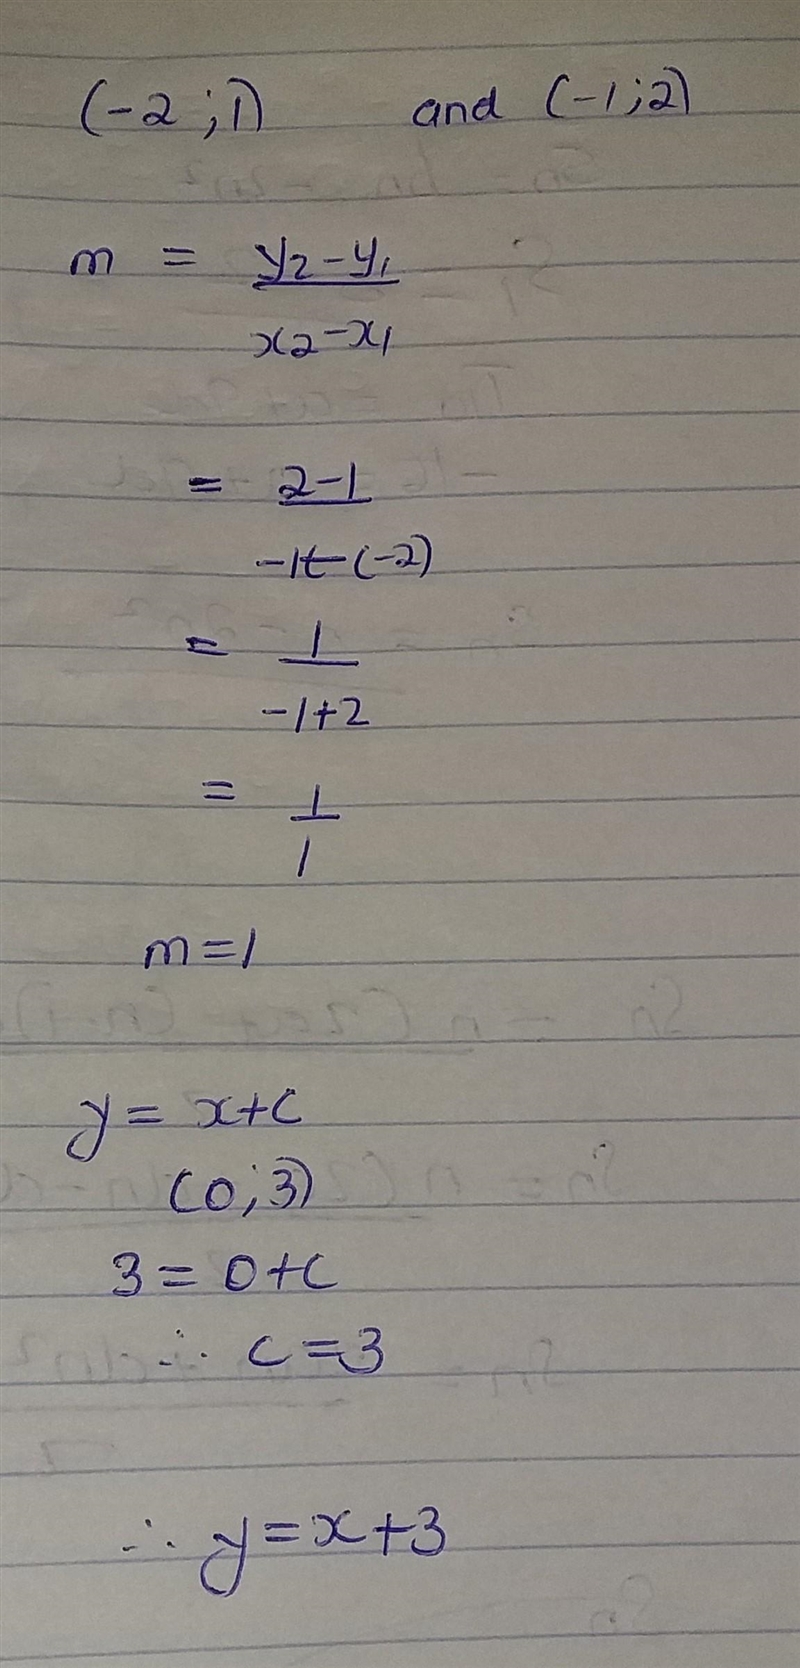 (-2 ; 1) and (-1 ; 2)
m = y2 - y1
x2 - x1
= 2 - 1
-1 - (-2)
= 1
-1 + 2
= 1
1
m = 1
y = x + c
(0 ; 3)
3 = 0 + c
∴ c = 3
∴ y = x + 3